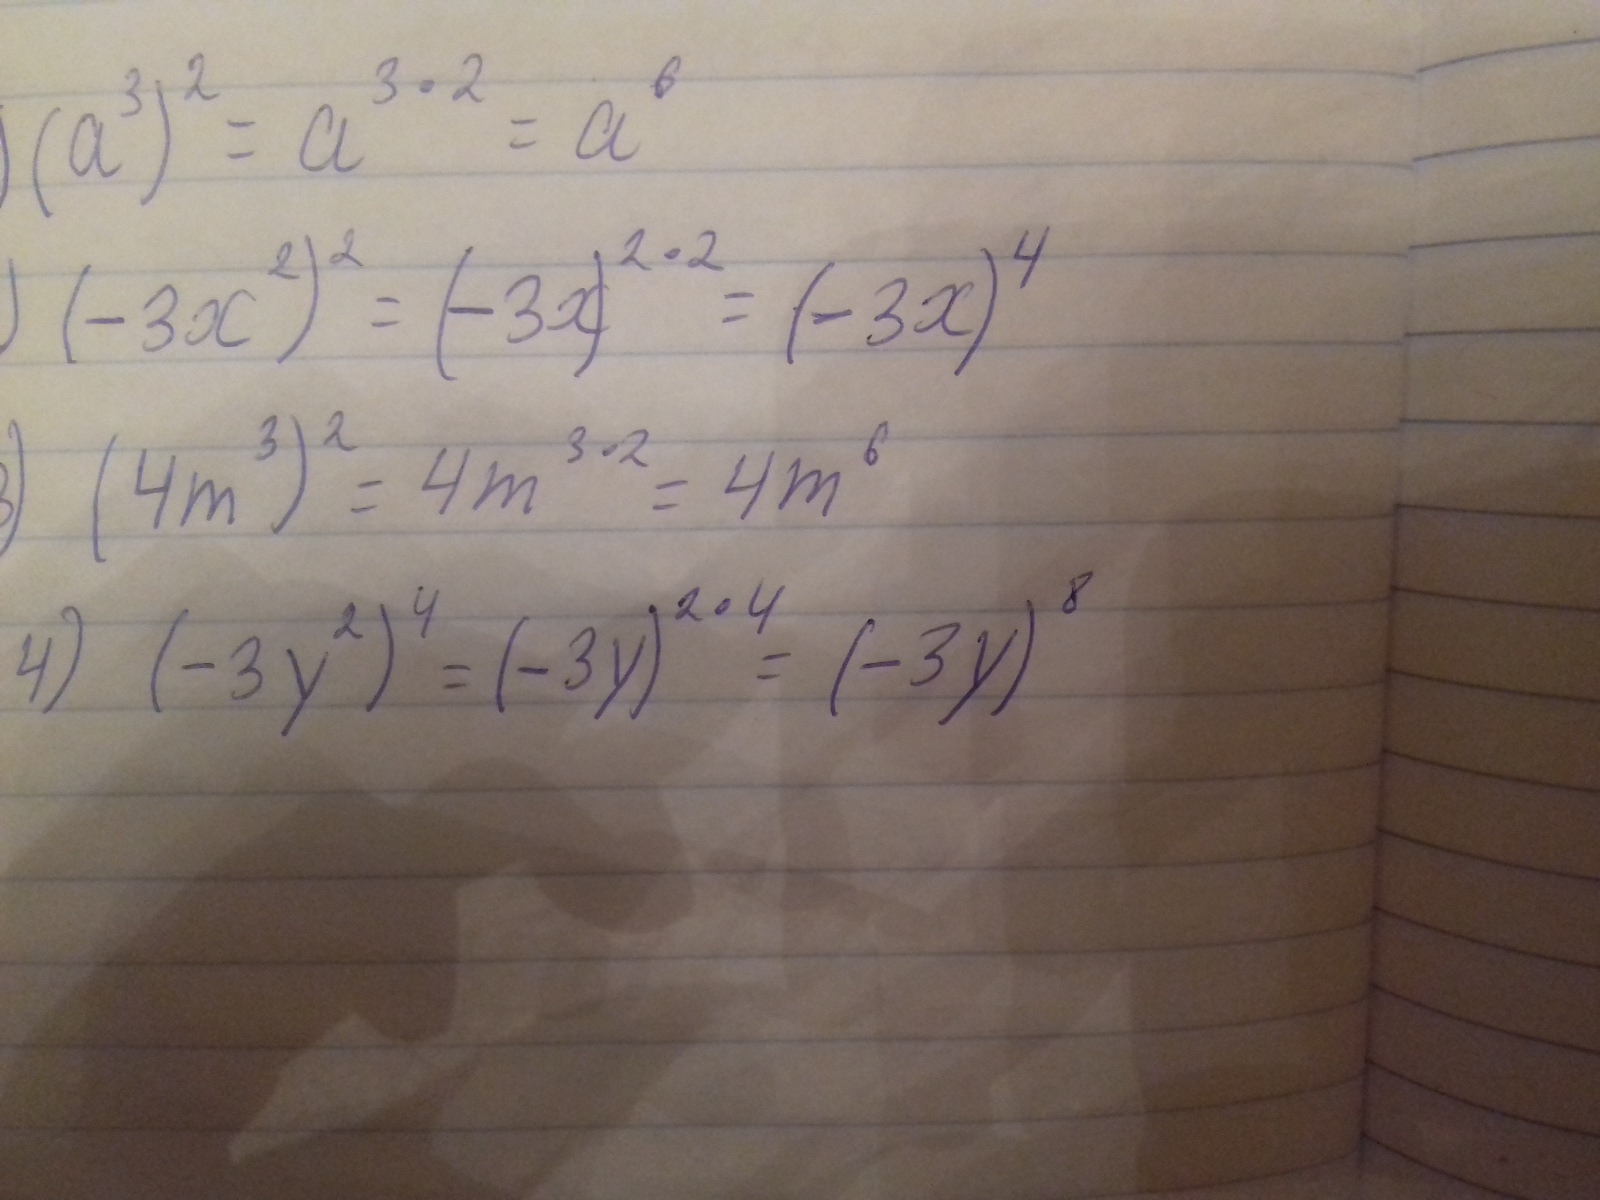 ) (a³)² = a³·² = a⁶
) (-3x²)² = (-3x)²·² = (-3x)⁴
3) (4m³)² = 4m³·² = 4m⁶
4) (-3y²)⁴ = (-3y)²·⁴ = (-3y)⁸